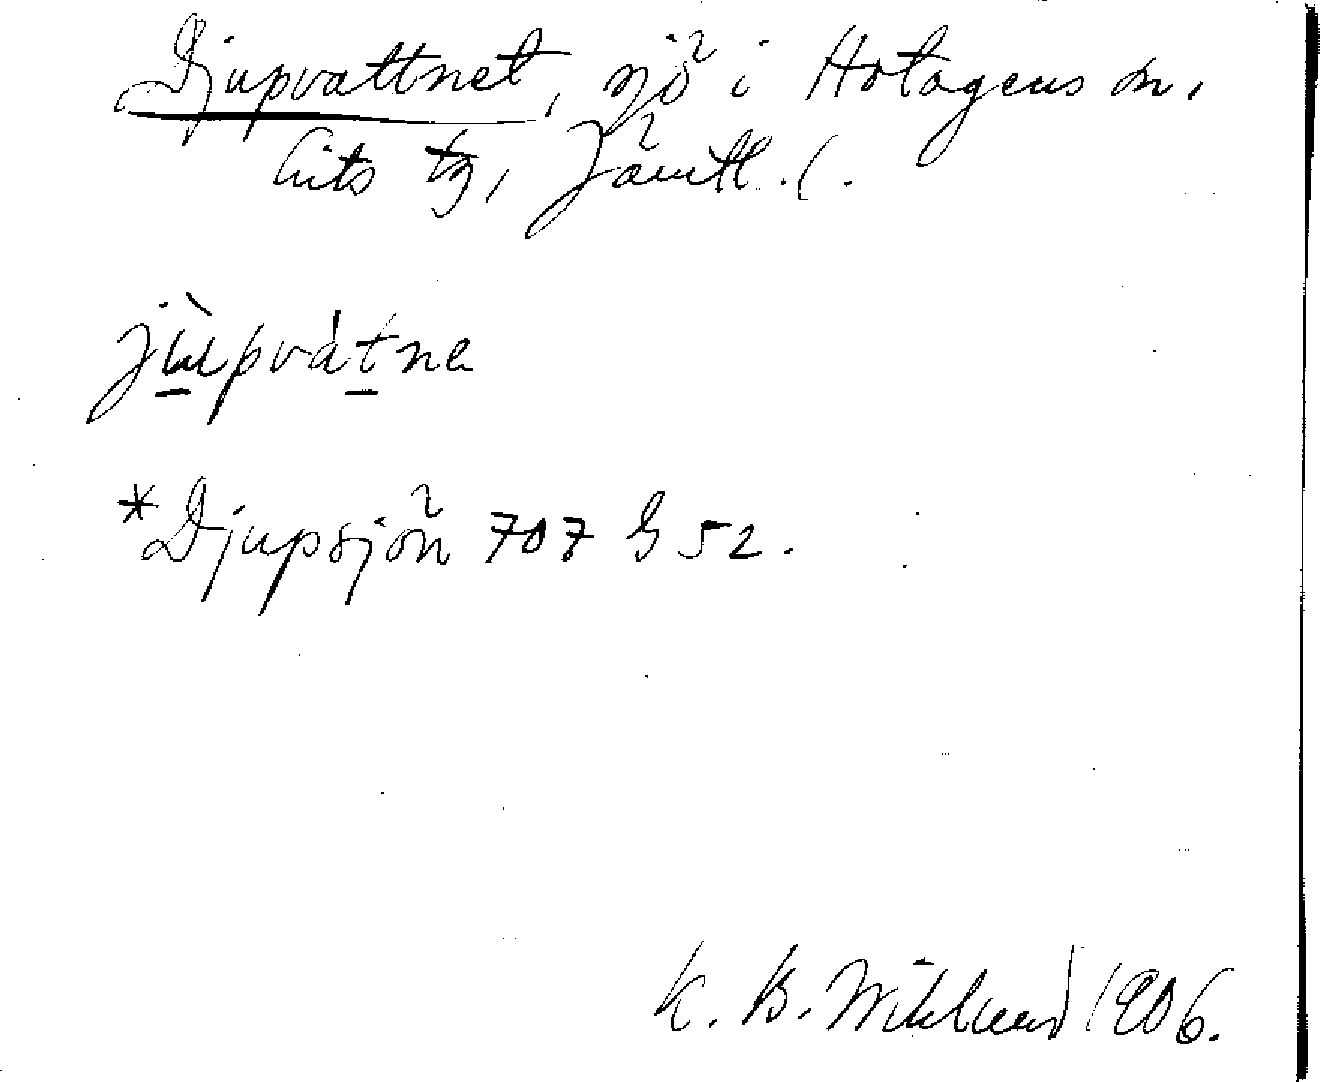 Djupvattnet, sjö i Hotagens sn,
Lits tg, Jämtl. l.
jùpvátna
*Djupsjön 707 G 52.
K. B. Wiklund 1906.